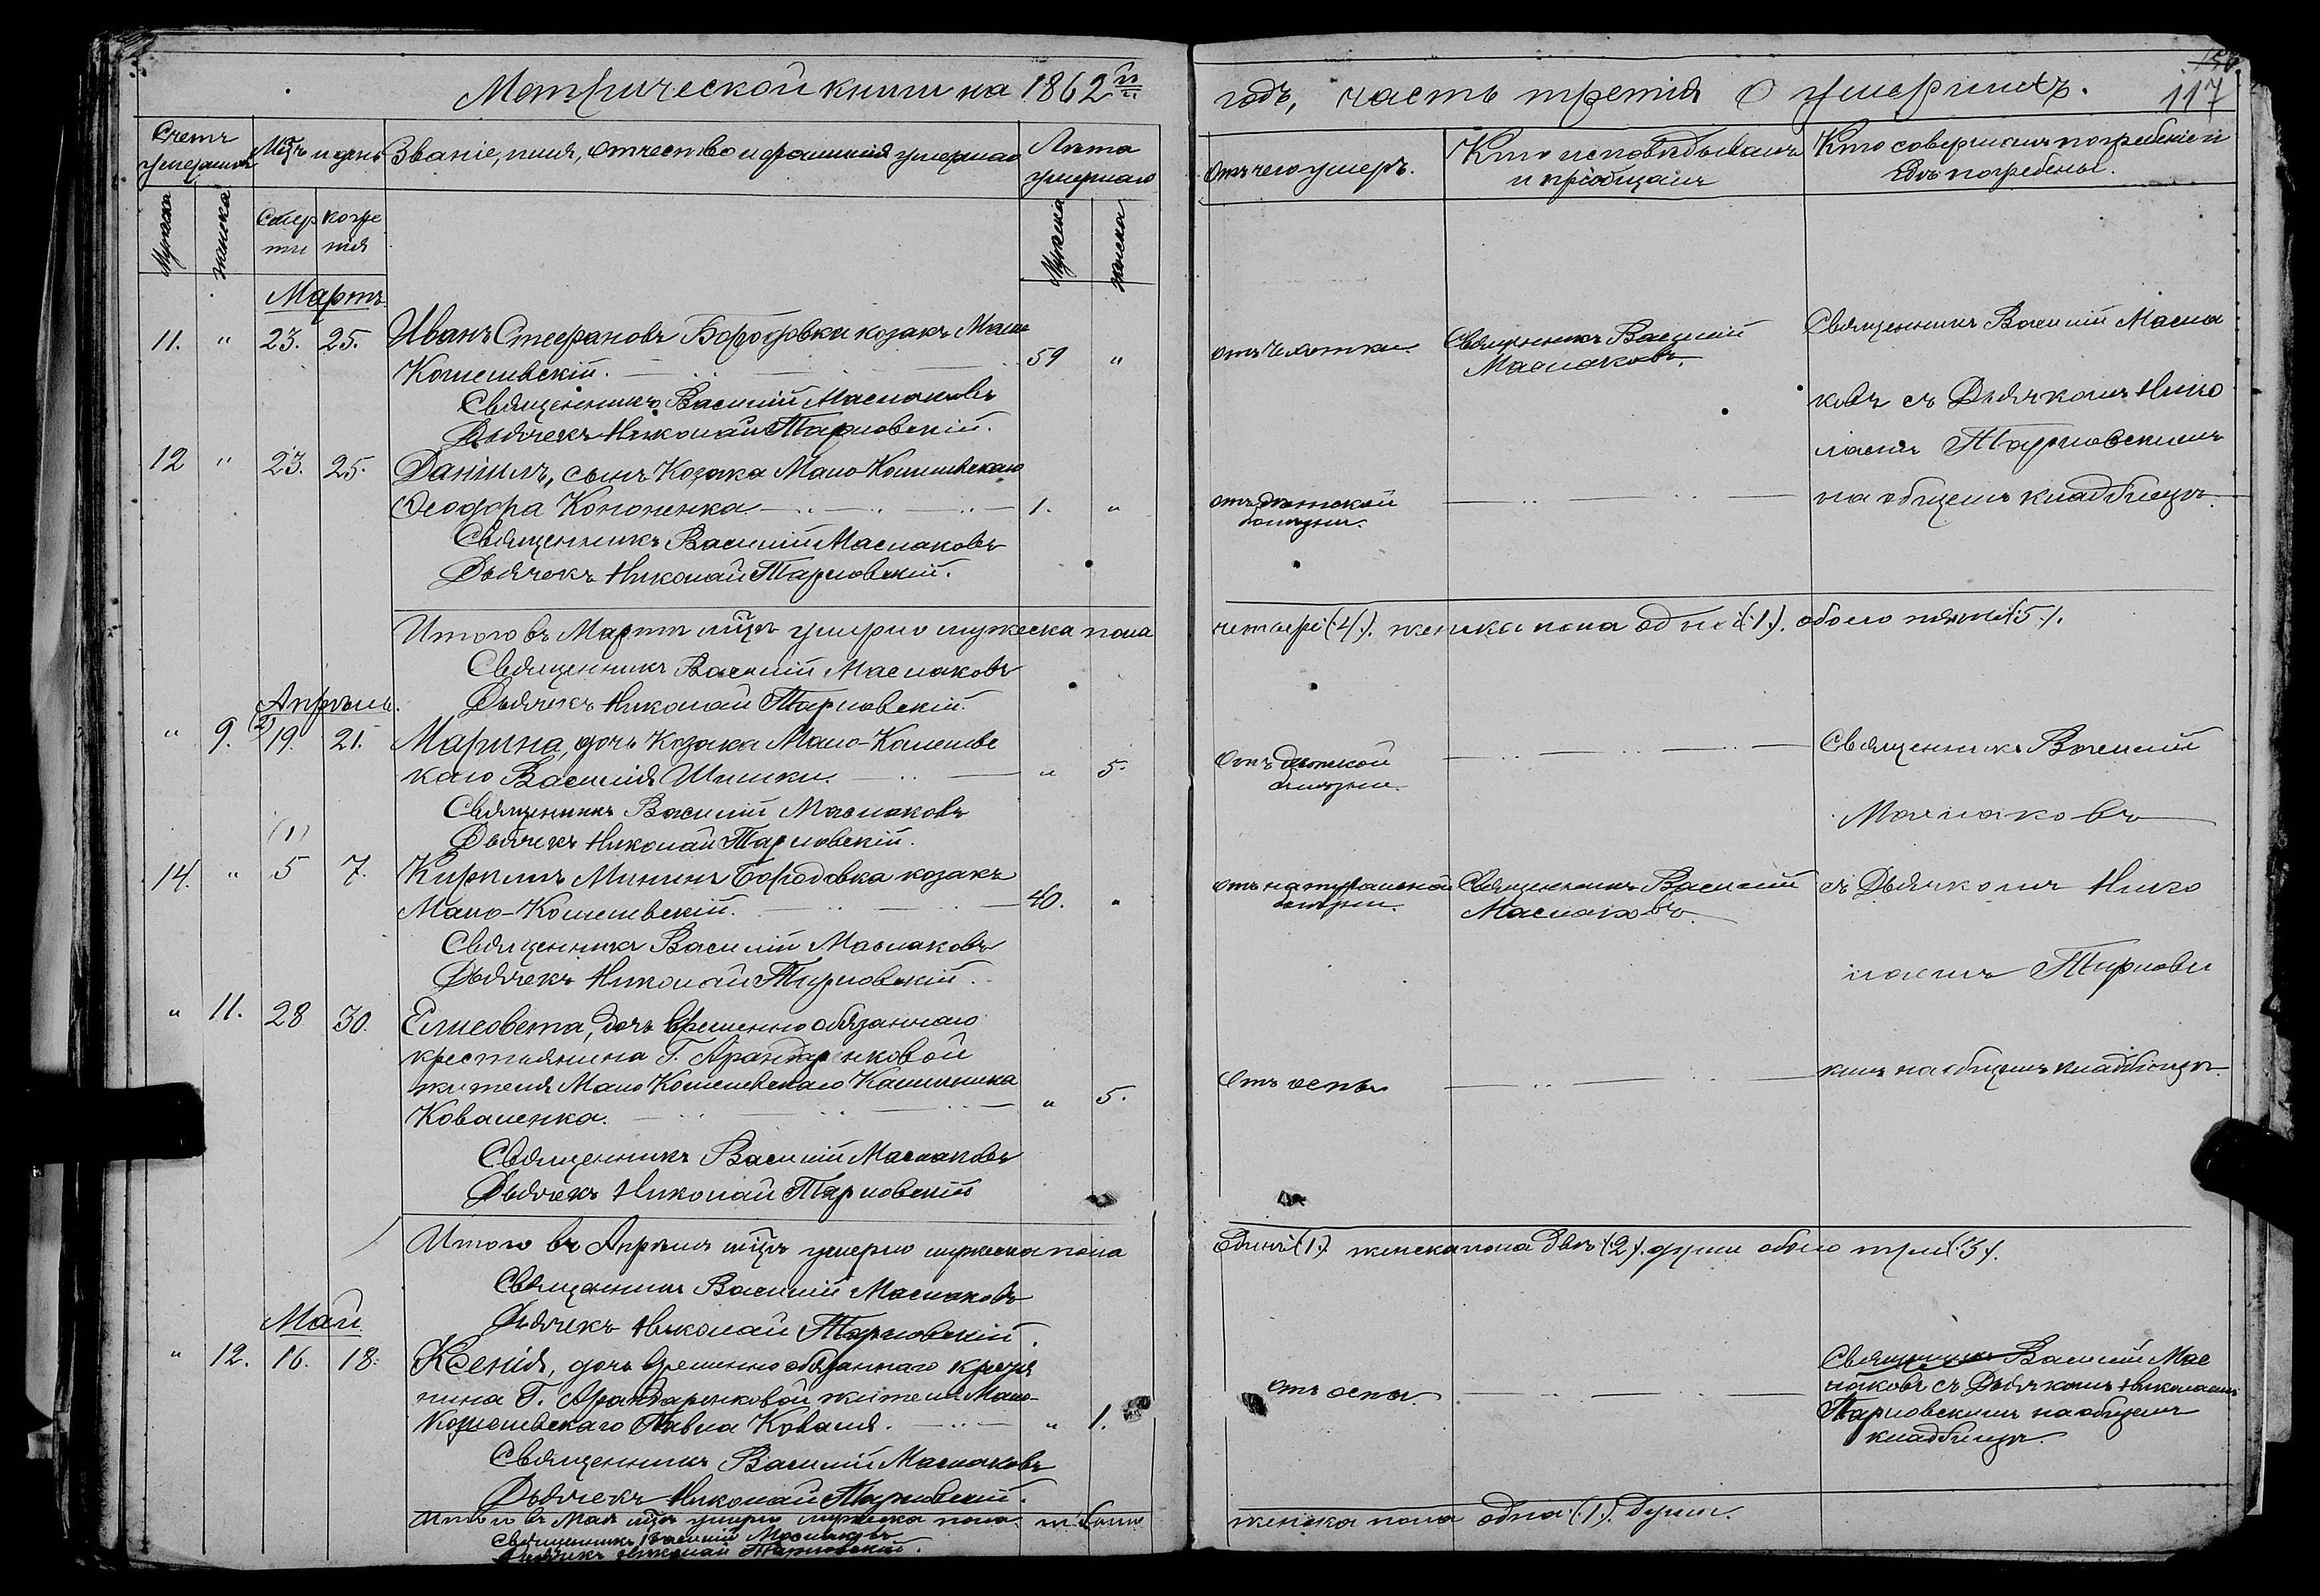 Метрической книги на 1862й
годъ, часть третія О умершихъ.
117
Счетъ умершихъ
Мѣсяцъ и день
Званіе, имя, отчество и фамилія умершаго
Лѣта умершаго
Отъ чего умеръ.
Кто исповѣдывалъ и пріобщалъ
Кто совершалъ погребеніе и гдѣ погребены.
Мужеска
женска
Смерти
погребенія
Мужеска
женска
Мартъ
11. " 23. 25. Иванъ Стефановъ Бородовка козакъ Мало
Кошелевскій. 59 "
отъ чахотки.
Священникъ Василій
Маслаковъ.
Священникъ Василій Масла
Священникъ Василій Маслаковъ
Дьячекъ Николай Тарловскій.
ковъ съ Дьячкомъ Нико
12 " 23. 25. Даніилъ, сынъ Козака Мало-Кошелевскаго
лаемъ Тарловскимъ
Ѳеодора Кононенка 1. "
отъ дѣтской
болѣзни.
на общемъ кладбищѣ.
Священникъ Василій Маслаковъ
Дьячекъ Николай Тарловскій.
Итого въ Мартѣ мѣсяцѣ умерло мужеска пола
четыре (4). женска пола одна (1). обоего пять (5).
Священникъ Василій Маслаковъ
Дьячекъ Николай Тарловскій.
Апрѣль.
" 9. (2) 19. 21. Марина, дочь Козака Мало-Кошелевс
каго Василія Шишки. " 5.
Отъ дѣтской
болѣзни.
Священникъ Василій
Священникъ Василій Маслаковъ
Дьячекъ Николай Тарловскій.
Маслаковъ
(1)
14. " 5 7. Кирилъ Мининъ Бородовка козакъ
Мало-Кошелевскій. 40. "
отъ натуральной
болѣзни.
Священникъ Василій
Маслаковъ.
съ Дьячкомъ Нико
Священникъ Василій Маслаковъ
Дьячекъ Николай Тарловскій.
лаемъ Тарловс
" 11. 28 30. Елисовета, дочь временно обязаннаго
крестьянина Г. Арандаренковой
жителя Мало Кошелевскаго Калинника
Коваленка. " 5.
Отъ оспы
кимъ на общемъ кладбищѣ.
Священникъ Василій Маслаковъ
Дьячекъ Николай Тарловскій
Итого въ Апрѣлѣ мѣсяцѣ умерло мужеска пола
одинъ (1) женска пола двѣ (2). души обоего три (3).
Священникъ Василій Маслаковъ
Дьячекъ Николай Тарловскій.
Май
" 12. 16. 18. Ксенія, дочь временно обязаннаго кресья
нина Г. Арандаренковой жителя Мало-
Кошелевскаго Павла Коваля. " 1.
отъ оспы.
Священникъ Василій Мас
лаковъ съ Дьячкомъ Николаемъ
Тарловскимъ на общемъ
кладбищѣ.
Священникъ Василій Маслаковъ
Дьячекъ Николай Тарловскій.
Итого въ Маѣ мѣсяцѣ умерло мужеска пола не было
женска пола одна (1). душа.
Священникъ Василій Маслаковъ
Дьячекъ Николай Тарловскій.